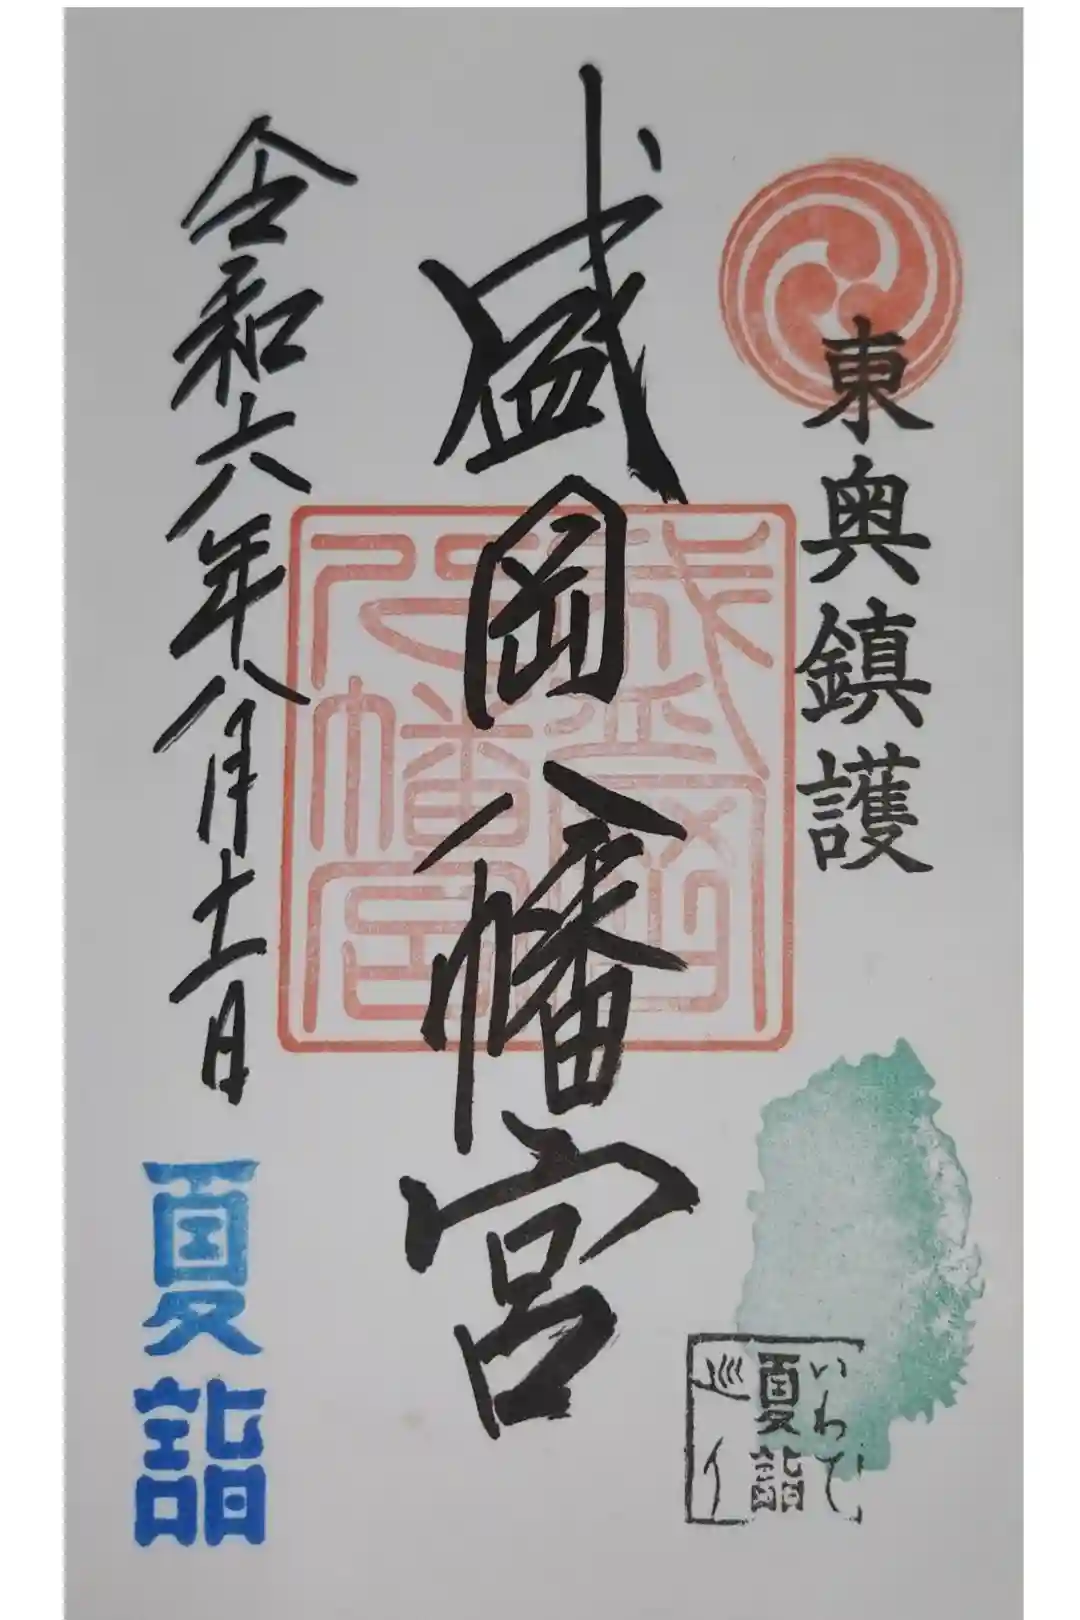 東奥鎮護
盛岡八幡宮
盛岡八幡宮
令和六年八月十一日
夏詣
いわて
夏詣
巡り